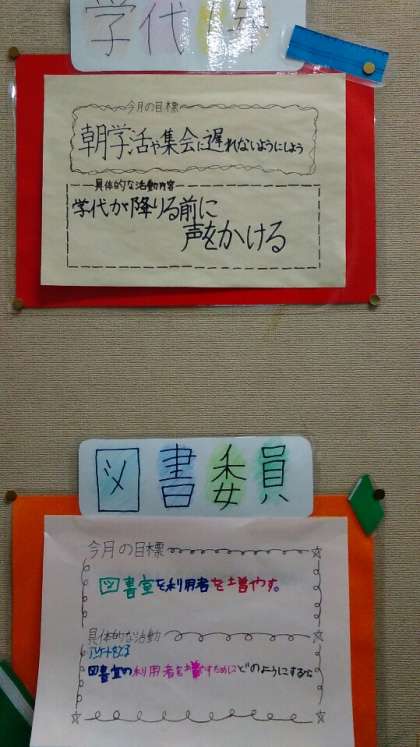 学代
今月の目標
朝学活や集会に遅れないようにしよう
具体的な活動内容
学代が降りる前に
声をかける
図書委員
今月の目標
図書室を利用者を増やす。
具体的な活動
アンケートをとる
図書室の利用者を増やすためにどのようにするか